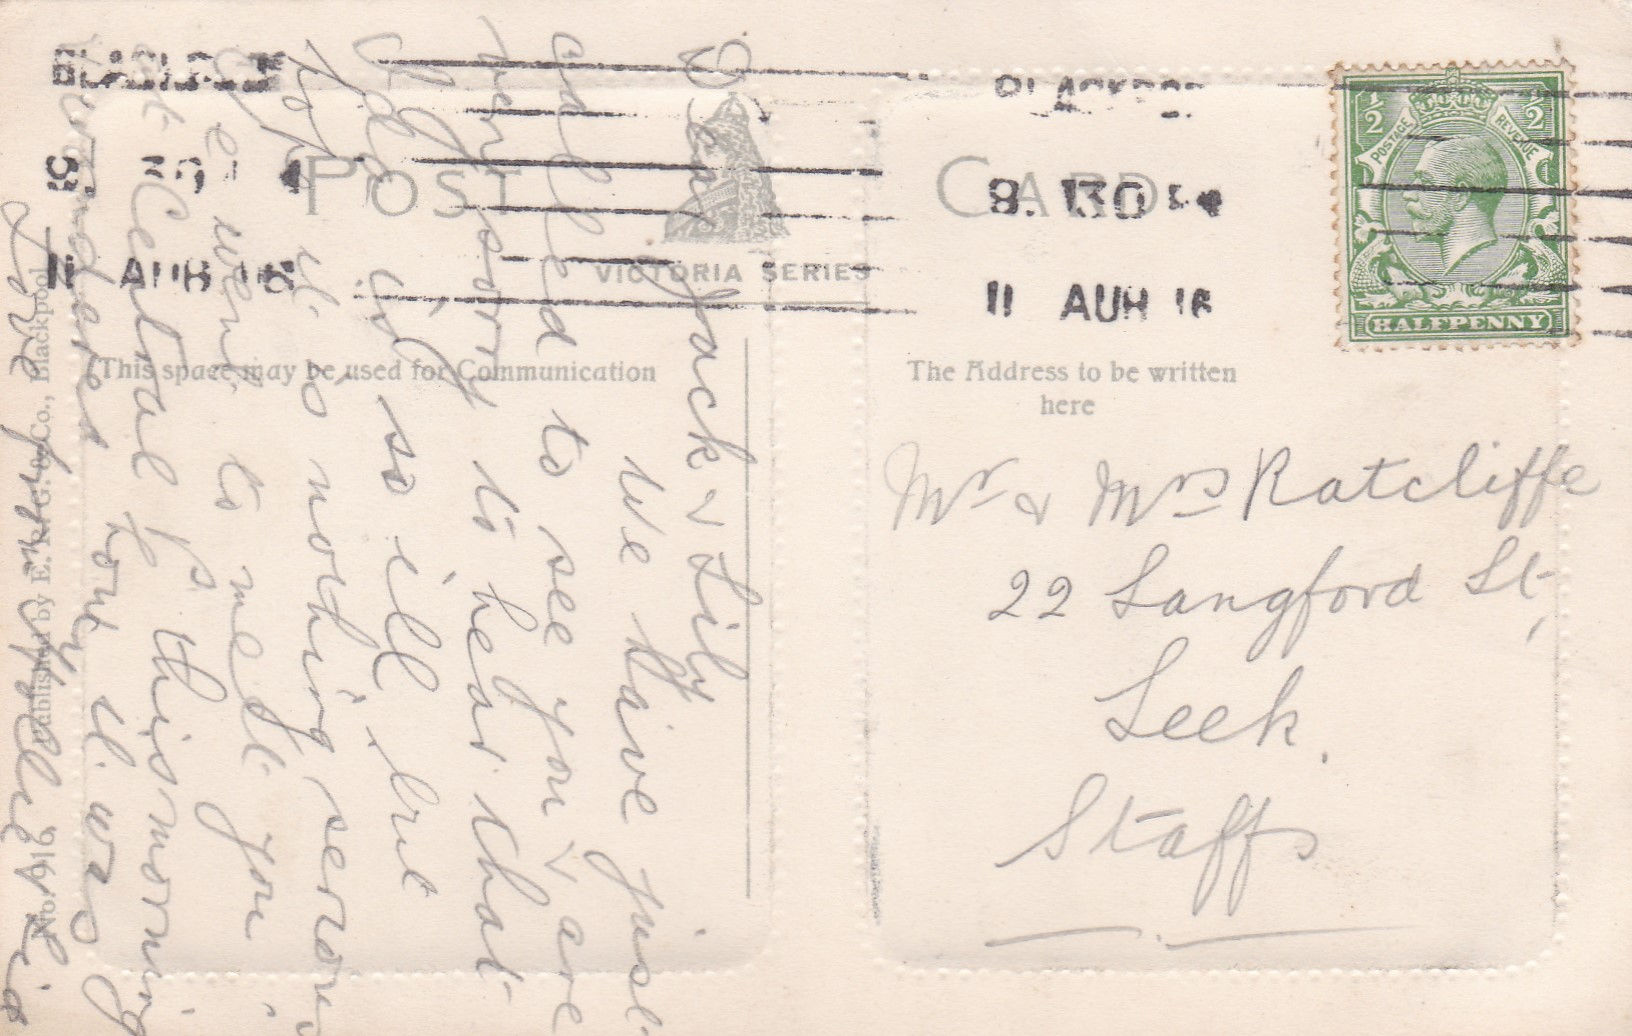 BLACKPOOL
8. 30
11 AUG 16
BLACKPOOL
8. 30
11 AUG 16
½ ½
POSTAGE REVENUE
HALFPENNY
POST CARD
VICTORIA SERIES
This space may be used for Communication
The Address to be written
here
Dear Jack & Lily
We have just
called to see you & are
sorry to hear that
Ada is so ill but
hope it is nothing serious
We went to meet you
at Central this morning
wondered how it was
Love from
Mr & Mrs Ratcliffe
22 Langford St
Leek.
Staffs
No. 916. Published by E. R. G. & Co., Blackpool